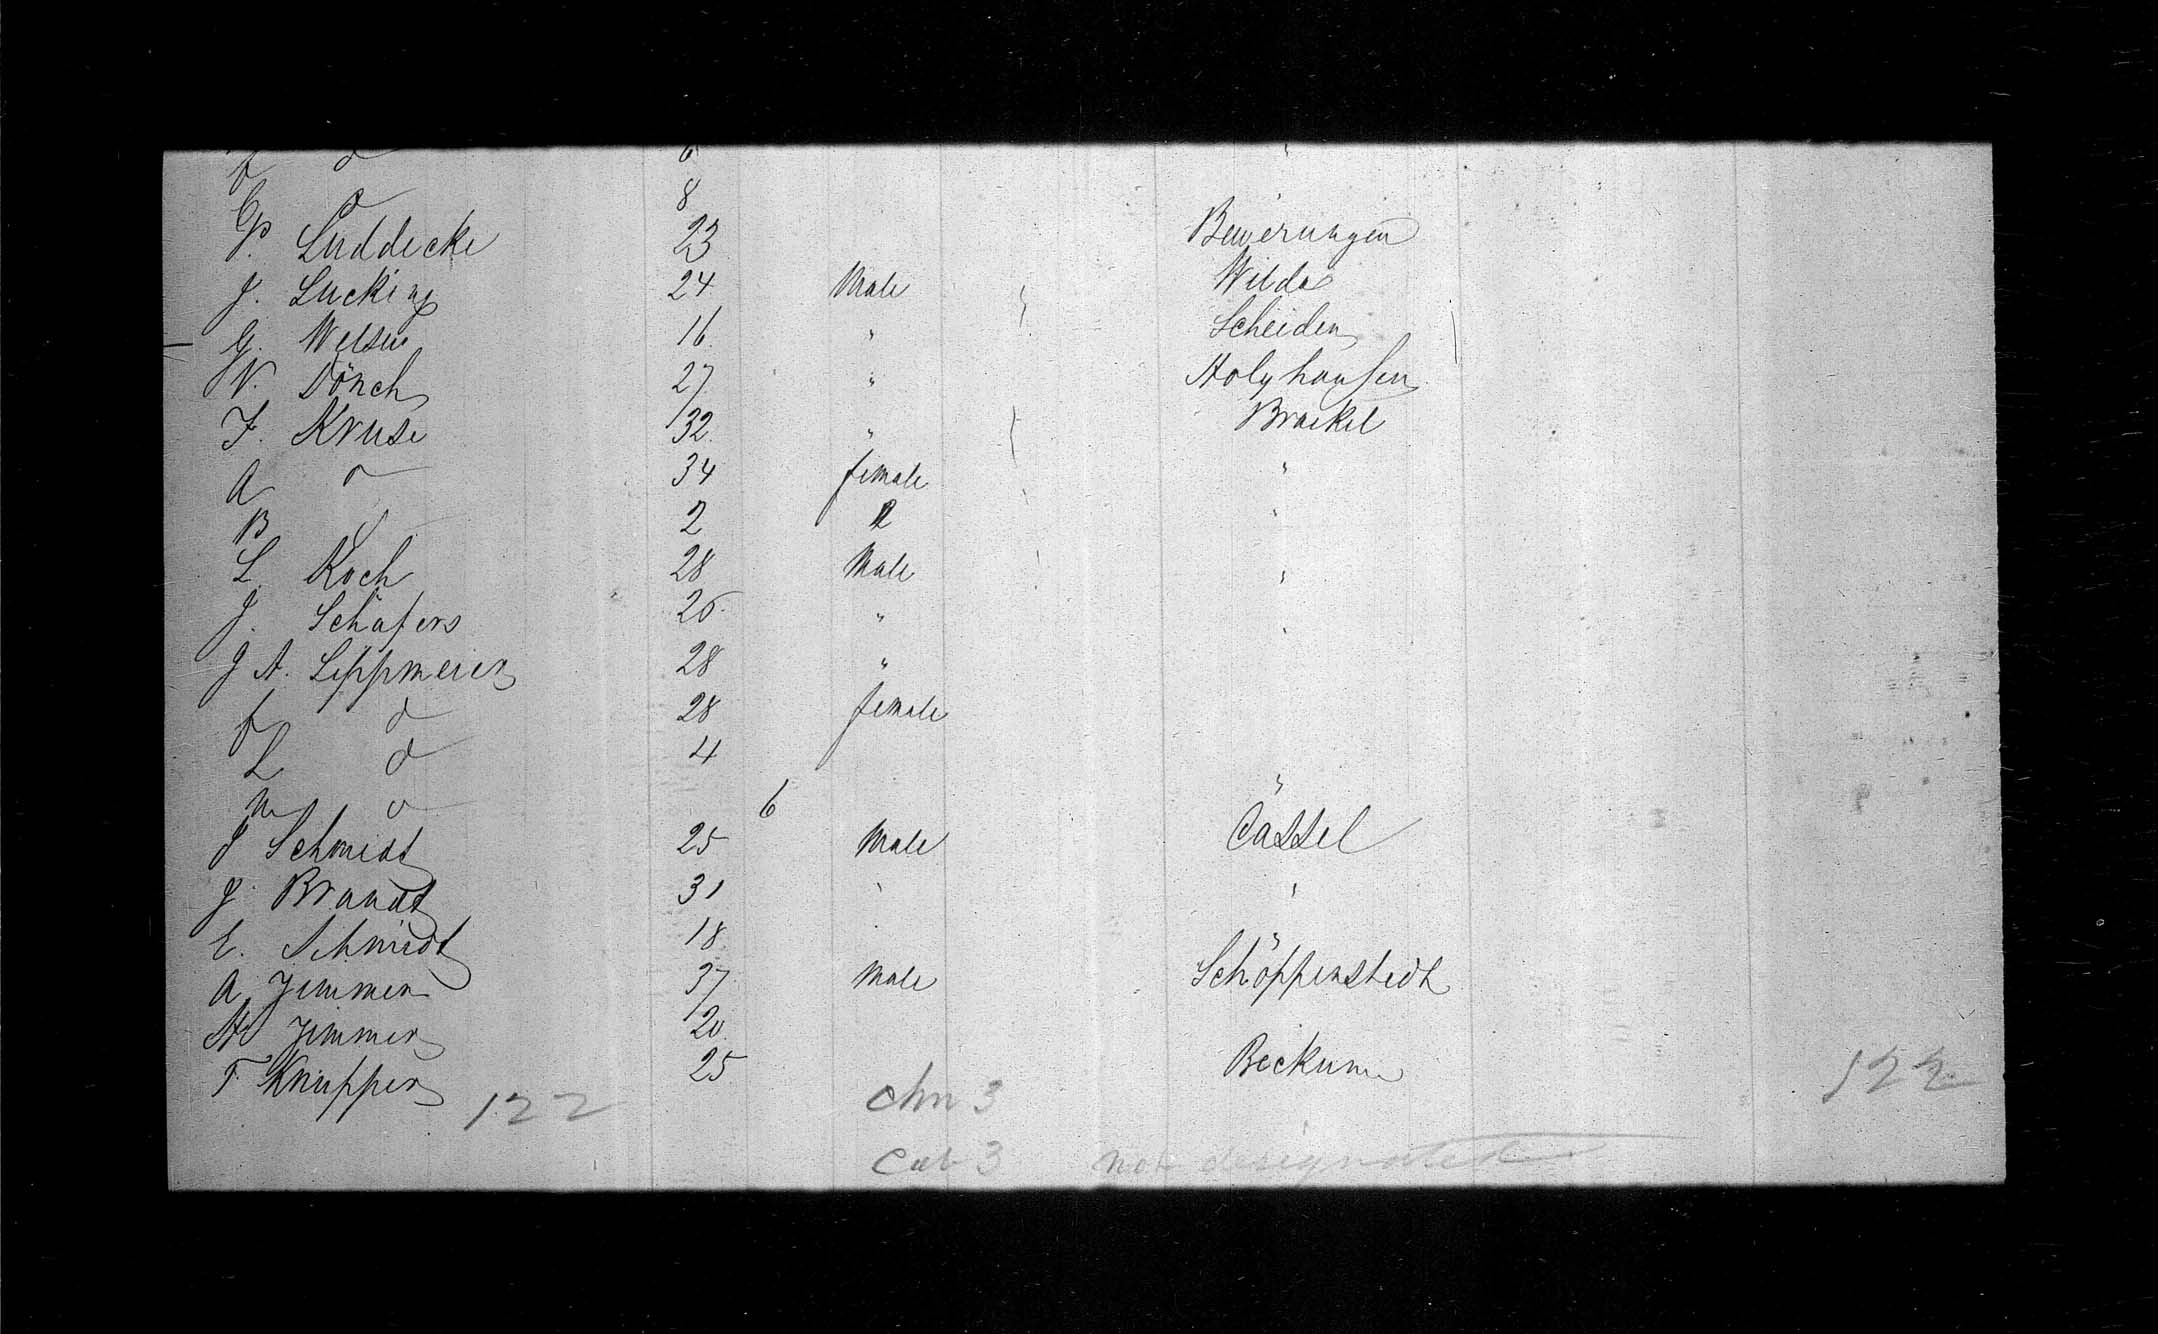 f d 6 "
C d 8
P. Luddecke 23 Beverungen
J. Lucking 24 Male Wilda
G. Welsen 16 " Scheiden
W. Dönch 27 " Holzhausen
F. Kruse 32 " Brackel
A d 34 female "
B 2 "
L Koch 28 Male "
J. Schäfers 26 " "
J H. Lippmeier 28 "
f d 28 female
L d 4
M d 6 "
J Schmidt 25 Male Cassel
J. Brandt 31 " "
E. Schmidt 18 "
A Zimmer 37 Male Schöppenstedt
H Zimmer 20
F. Knüpper 25 Beckum
122 chn 3 122
cab 3 not designated